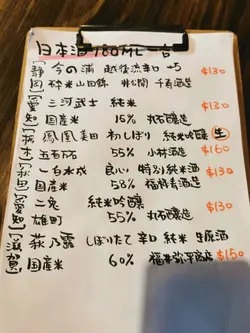 日本酒180ml一合
[静岡] 今の浦 越後流辛口 +5 $130
砕米山田錦 非公開 千寿酒造
[愛知] 三河武士 純米 $130
国産米 15% 丸石醸造
[栃木] 鳳凰美田 初しぼり 純米吟醸 生
五百万石 55% 小林酒造 $160
[秋田] 一白水成 良心 特別純米酒 $130
国産米 58% 福禄寿酒造
[愛知] 二兎 純米吟醸 $130
雄町 55% 丸石醸造
[滋賀] 萩乃露 しぼりたて 辛口 純米 生原酒
国産米 60% 福井弥平商店 $150